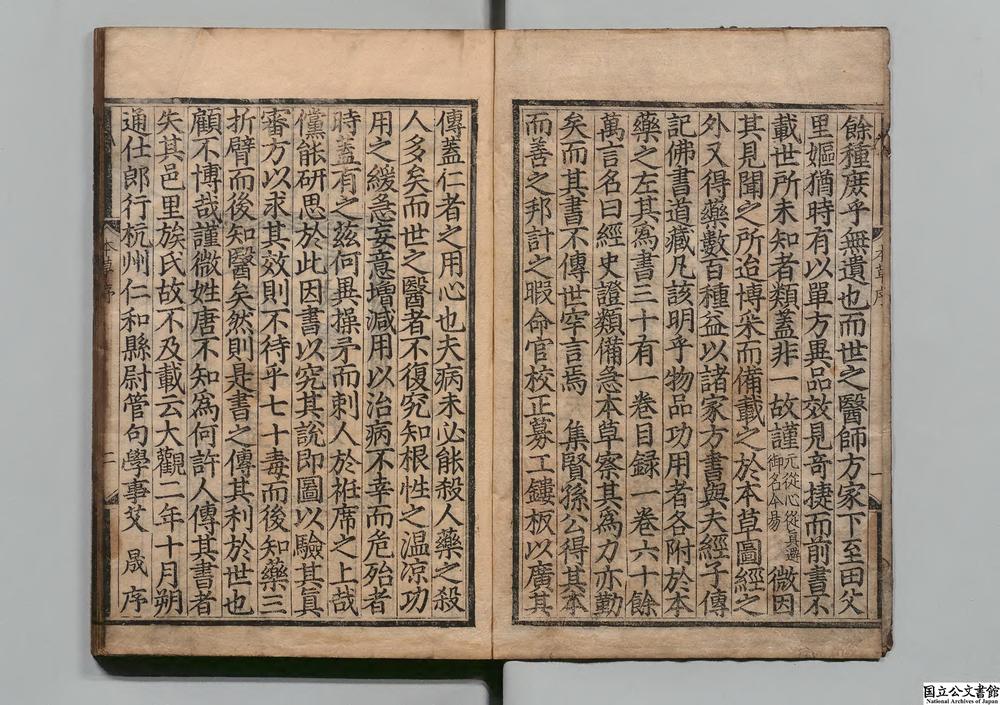 餘種庶乎無遺也而世之醫師方家下至田父
里嫗猶時有以單方異品效見奇捷而前書不
載世所未知者類蓋非一故謹元從心從真避御名今易微因
其見聞之所迨博采而備載之於本草圖經之
外又得藥數百種益以諸家方書與夫經子傳
記佛書道藏凡該明乎物品功用者各附於本
藥之左其為書三十有一卷目録一卷六十餘
萬言名曰經史證類備急本草察其為力亦勤
矣而其書不傳世罕言焉 集賢孫公得其本
而善之邦計之暇命官校正募工鏤板以廣其
傳蓋仁者之用心也夫病未必能殺人藥之殺
人多矣而世之醫者不復究知根性之温涼功
用之緩急妄意增減用以治病不幸而危殆者
時蓋有之兹何異操矛而刺人於袵席之上哉
儻能研思於此因書以究其說即圖以驗其真
審方以求其效則不待乎七十毒而後知藥三
折臂而後知醫矣然則是書之傳其利於世也
顧不博哉謹微姓唐不知為何許人傳其書者
失其邑里族氏故不及載云大觀二年十月朔
通仕郎行杭州仁和縣尉管句學事艾 晟 序
本草序
二
国立公文書館
National Archives of Japan